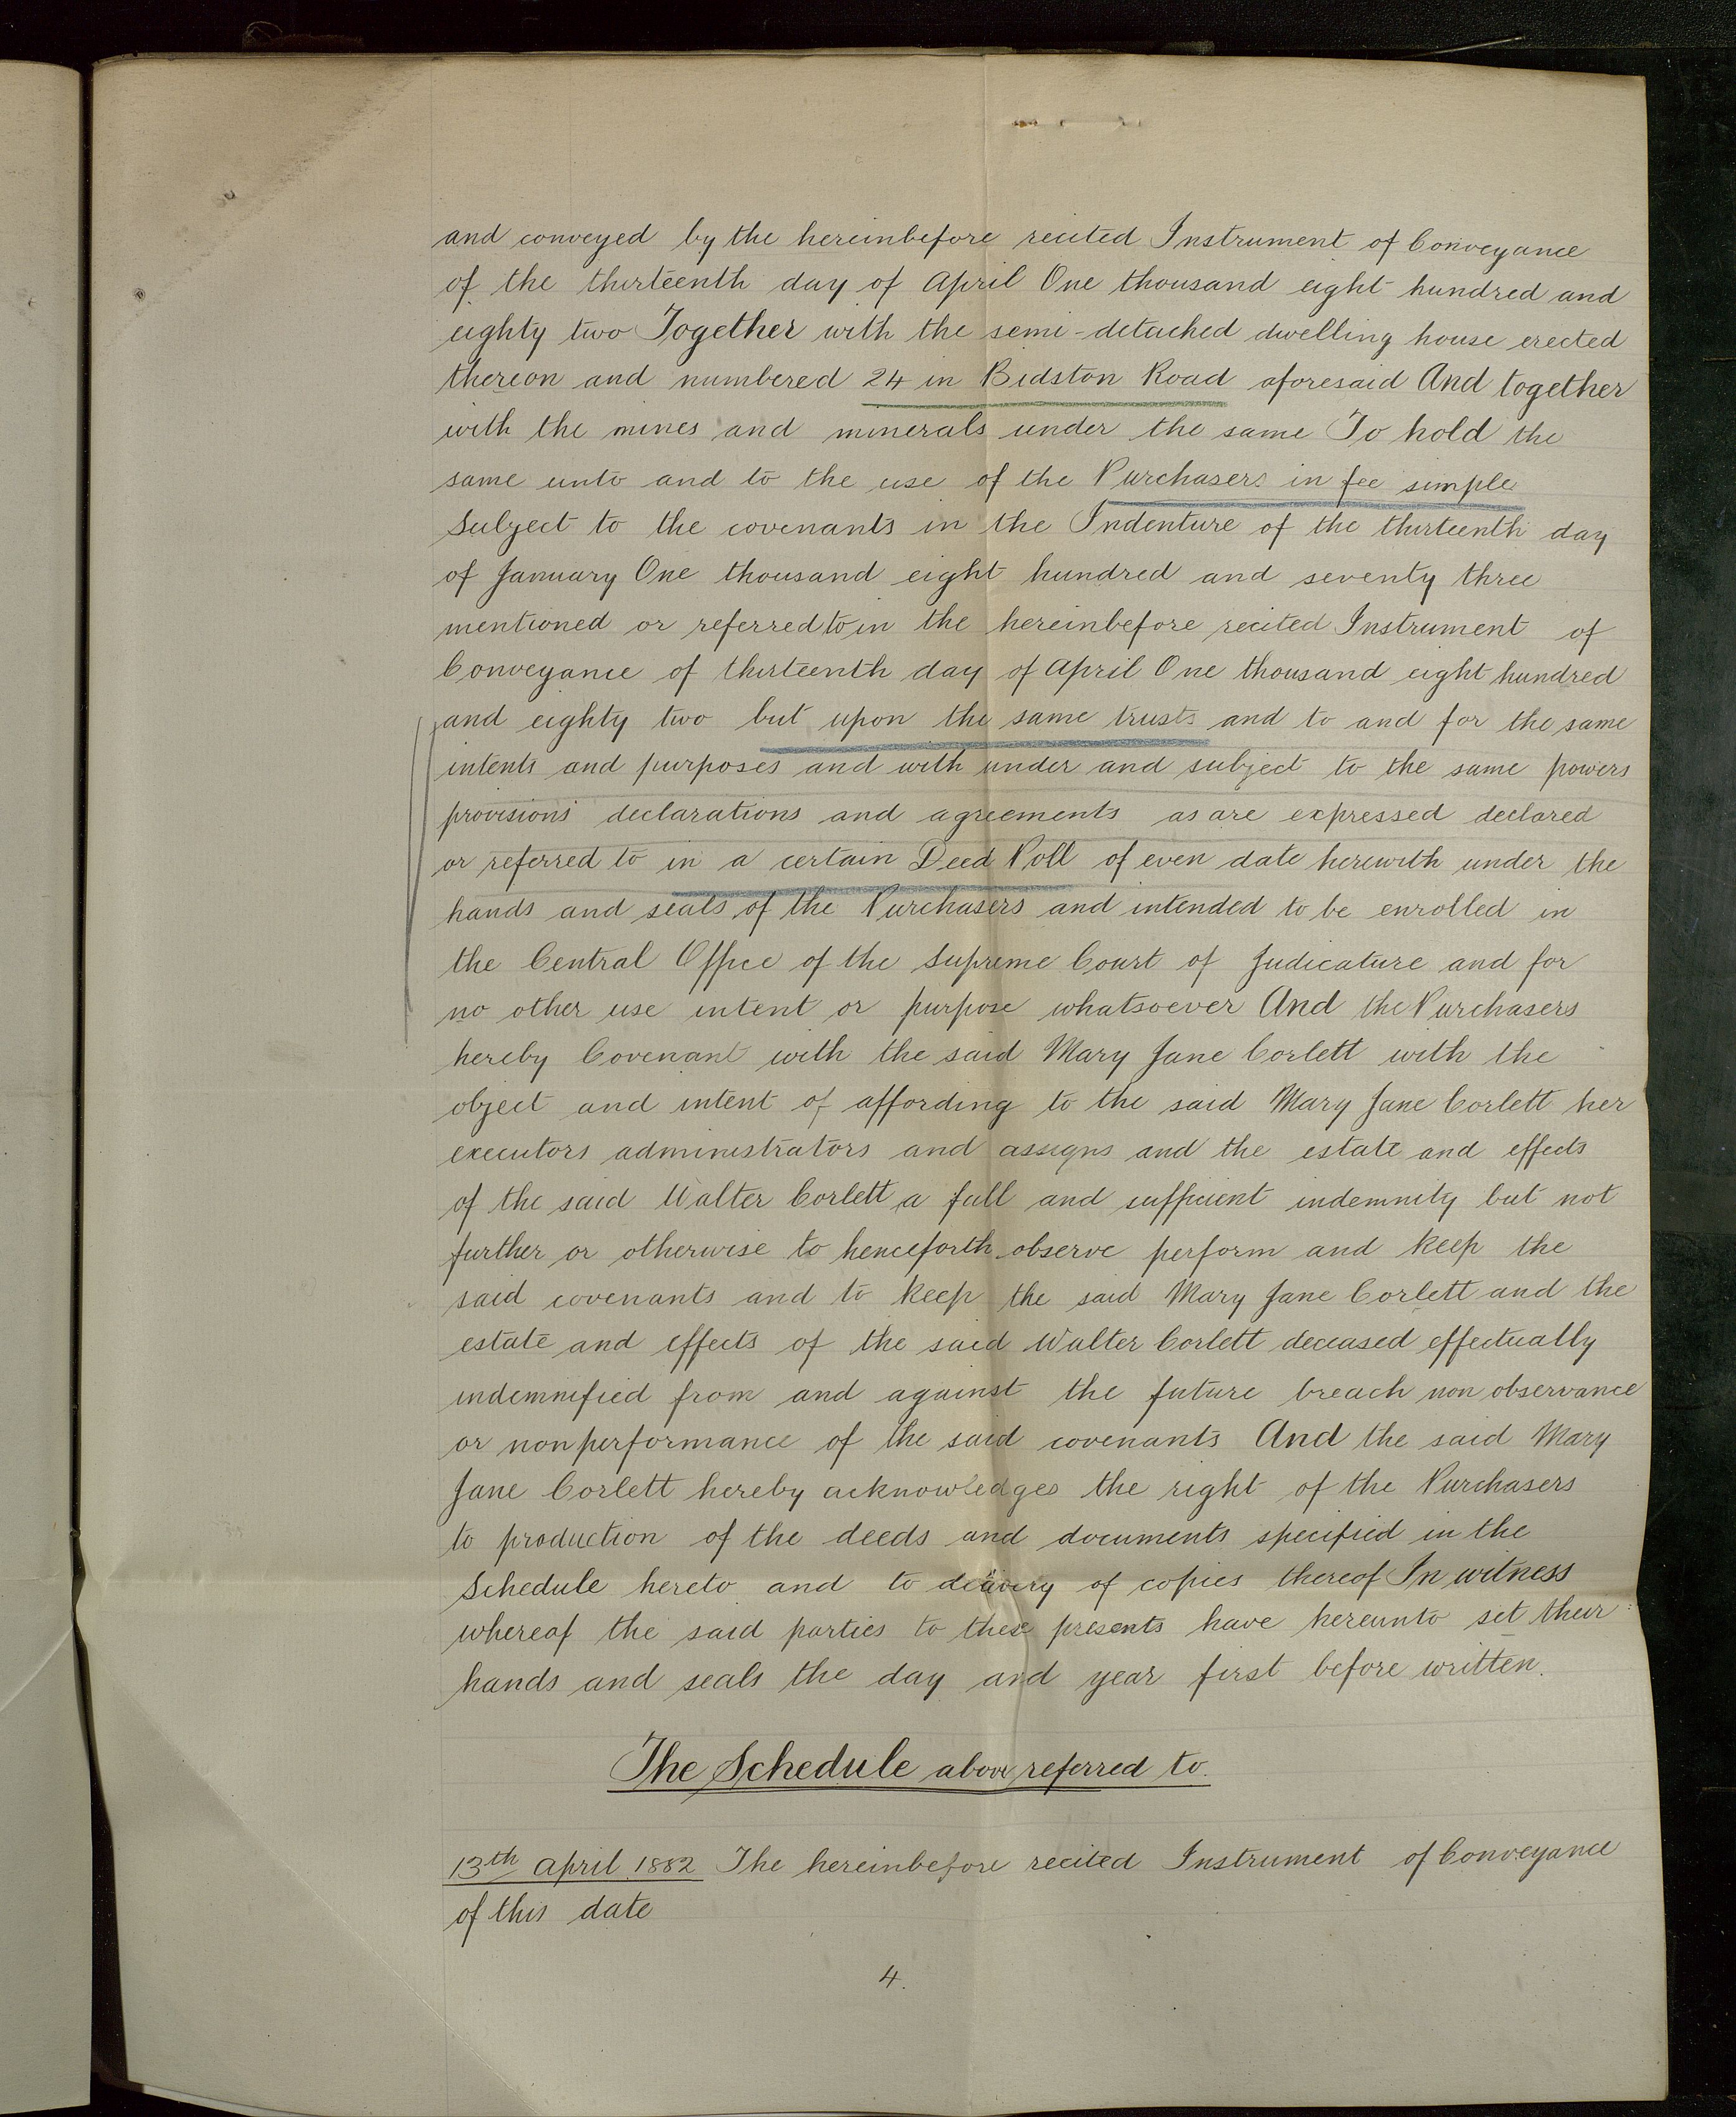 and conveyed by the hereinbefore recited Instrument of Conveyance
of the thirteenth day of April One thousand eight hundred and
eighty two Together with the semi-detached dwelling house erected
thereon and numbered 24 in Bidston Road aforesaid And together
with the mines and minerals under the same To hold the
same unto and to the use of the Purchasers in fee simple
Subject to the covenants in the Indenture of the thirteenth day
of January One thousand eight hundred and seventy three
mentioned or referred to in the hereinbefore recited Instrument of
Conveyance of thirteenth day of April One thousand eight hundred
and eighty two but upon the same trusts and to and for the same
intents and purposes and with under and subject to the same powers
provisions declarations and agreements as are expressed declared
or referred to in a certain Deed Poll of even date herewith under the
hands and seals of the Purchasers and intended to be enrolled in
the Central Office of the Supreme Court of Judicature and for
no other use intent or purpose whatsoever And the Purchasers
hereby Covenant with the said Mary Jane Corlett with the
object and intent of affording to the said Mary Jane Corlett her
executors administrators and assigns and the estate and effects
of the said Walter Corlett a full and sufficient indemnity but not
further or otherwise to henceforth observe perform and keep the
said covenants and to keep the said Mary Jane Corlett and the
estate and effects of the said Walter Corlett deceased effectually
indemnified from and against the future breach non observance
or non performance of the said covenants And the said Mary
Jane Corlett hereby acknowledges the right of the Purchasers
to production of the deeds and documents specified in the
Schedule hereto and to delivery of copies thereof In witness
whereof the said parties to these presents have hereunto set their
hands and seals the day and year first before written.
The Schedule above referred to.
13th April 1882 The hereinbefore recited Instrument of Conveyance
of this date
4.